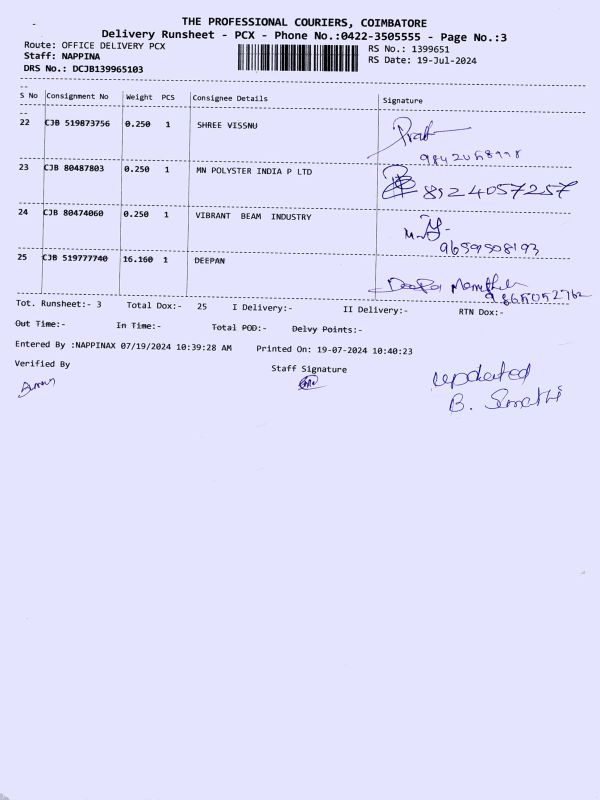 THE PROFESSIONAL COURIERS, COIMBATORE
Delivery Runsheet - PCX - Phone No.:0422-3505555 - Page No.:3
Route: OFFICE DELIVERY PCX RS No.: 1399651
Staff: NAPPINA RS Date: 19-Jul-2024
DRS No.: DCJB139965103
S No Consignment No Weight PCS Consignee Details Signature
22 CJB 519873756 0.250 1 SHREE VISSNU
23 CJB 80487803 0.250 1 MN POLYSTER INDIA P LTD
8924057257
24 CJB 80474060 0.250 1 VIBRANT BEAM INDUSTRY
9659508193
25 CJB 519777740 16.160 1 DEEPAN
9865052762
Tot. Runsheet:- 3 Total Dox:- 25 I Delivery:- II Delivery:- RTN Dox:-
Out Time:- In Time:- Total POD:- Delvy Points:-
Entered By :NAPPINAX 07/19/2024 10:39:28 AM Printed On: 19-07-2024 10:40:23
Verified By Staff Signature
updated
B.